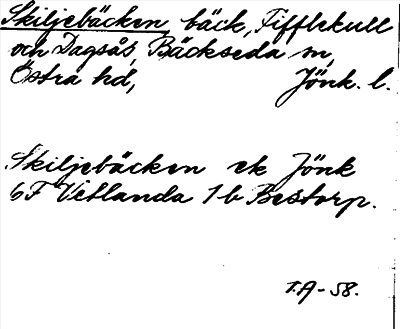 Skiljebäcken bäck, Fifflekull
och Dagsås, Bäckseda sn,
Östra hd, Jönk. l.
Skiljebäcken ek Jönk
6F Vetlanda 1b Bestorp.
T.A-58.